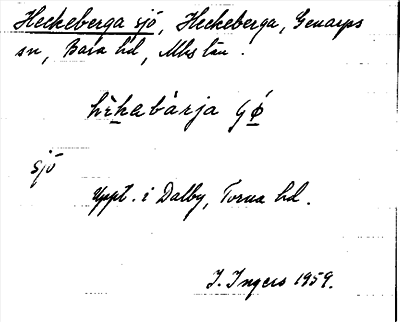 Heckeberga sjö, Heckeberga, Genarps
sn, Bara hd, Mhs län.
sjö
Uppt. i Dalby, Torna hd.
I. Ingers 1959.